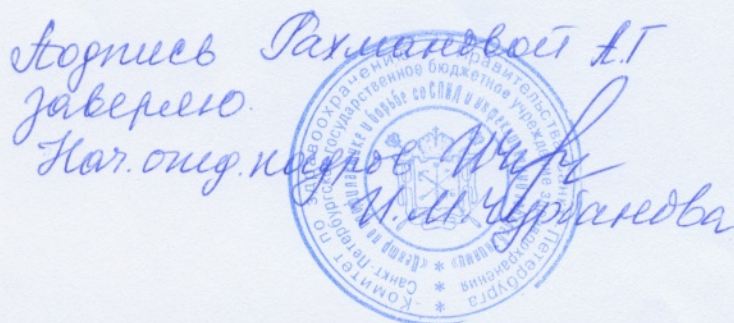 Подпись Рахмановой А.Г
заверяю.
Нач. отд. кадров
И.М. Чурбанова
Комитет по здравоохранению Правительства Санкт-Петербурга
Санкт-Петербургское государственное бюджетное учреждение здравоохранения
«Центр по профилактике и борьбе со СПИД и инфекционными